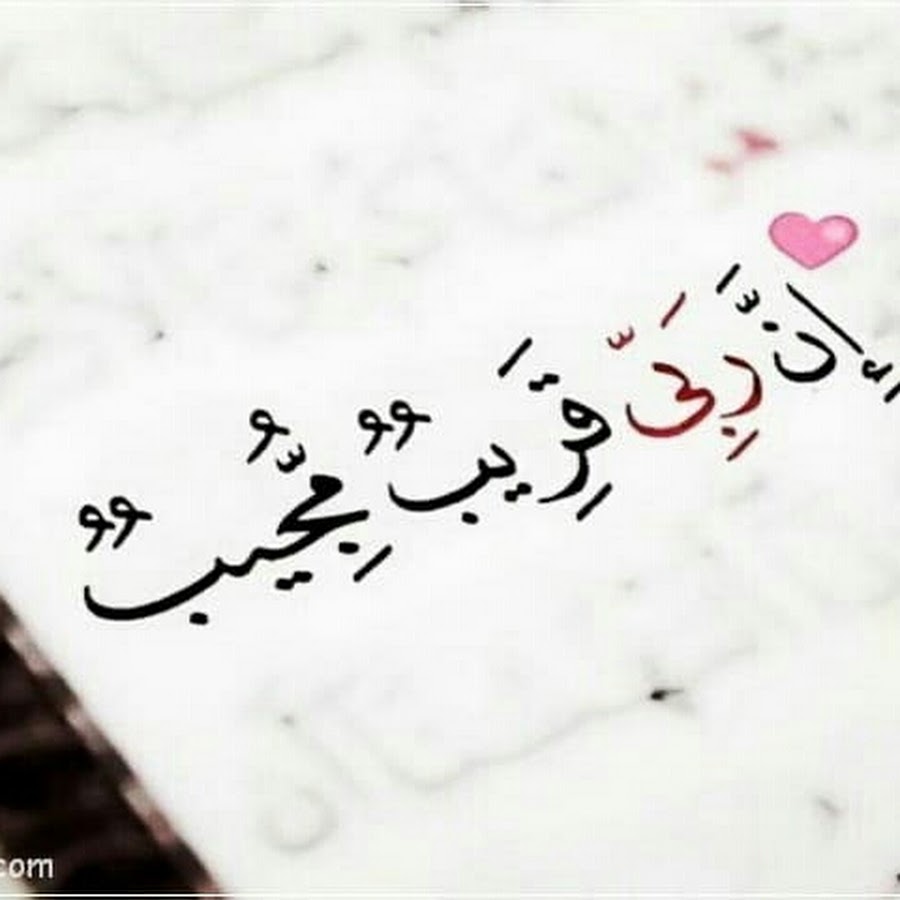 إِنَّ رَبِّي قَرِيبٌ مُّجِيبٌ
com